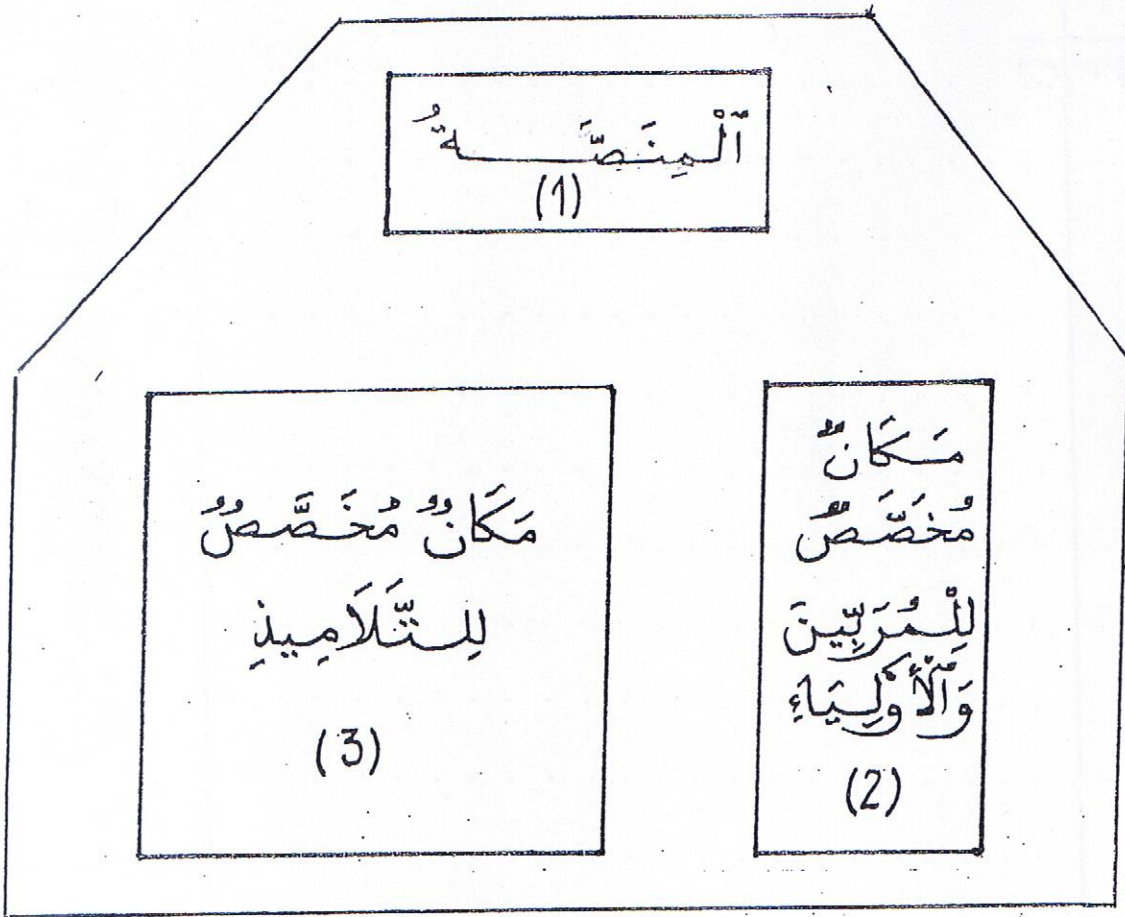 اَلْمِنَصَّـــــةُ
(1)
مَكَانٌ
مُخَصَّصٌ
لِلْمُرَبِّينَ
وَالْأَوْلِيَاءِ
(2)
مَكَانٌ مُخَصَّصٌ
لِلتَّلَامِيذِ
(3)